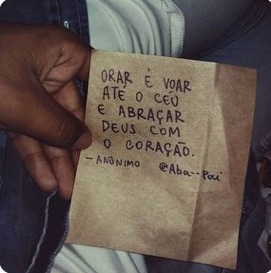 ORAR É VOAR
ATÉ O CÉU
E ABRAÇAR
DEUS COM
O CORAÇÃO.
— ANÔNIMO @Aba--Pai